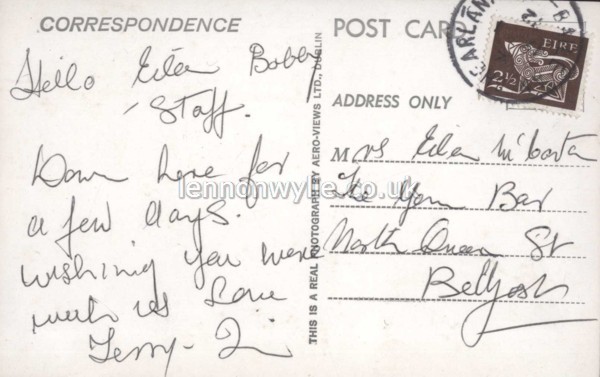 CORRESPONDENCE
Hello Eilen Bobby
Staff.
Down here for
a few days.
wishing you were
with us love
Terry - Jim
THIS IS A REAL PHOTOGRAPH BY AERO-VIEWS LTD., DUBLIN
POST CAR
EIRE
2½
ADDRESS ONLY
Mrs Eilen
The Bar
North Queen St
Belfast
lennonwylie.co.uk